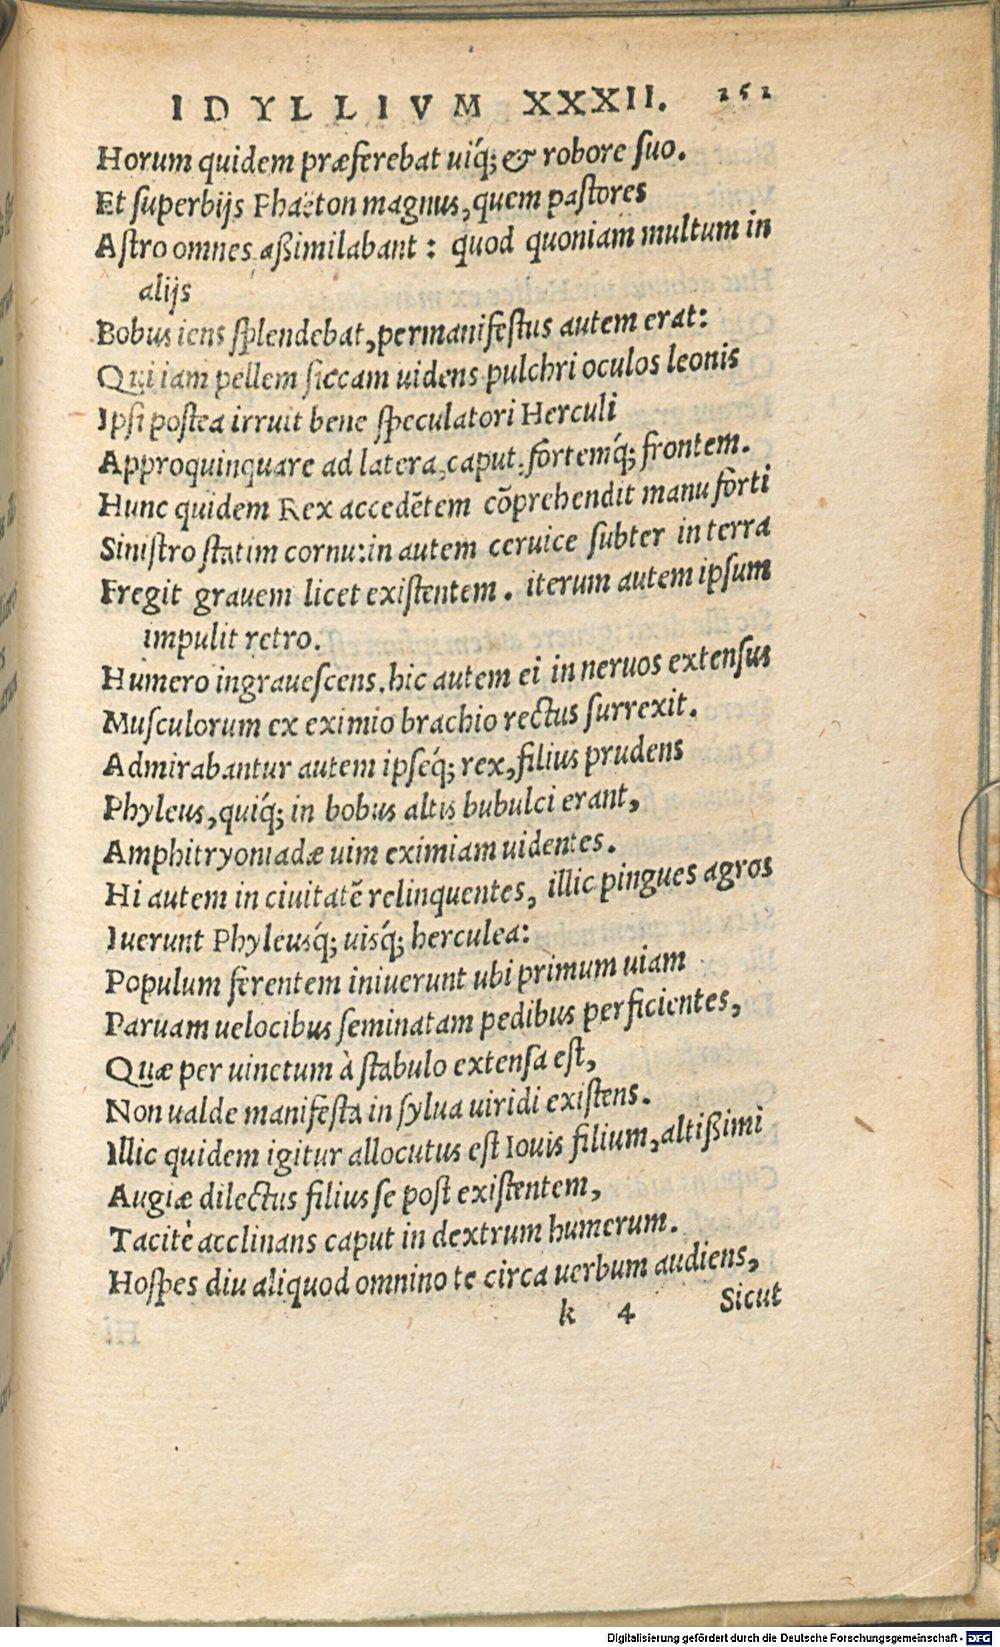 IDYLLIVM XXXII. 151
Horum quidem præferebat uiq́; & robore suo.
Et superbijs Phaëton magnus, quem pastores
Astro omnes aßimilabant: quod quoniam multum in
alijs
Bobus iens splendebat, permanifestus autem erat:
Qui iam pellem siccam uidens pulchri oculos leonis
Ipsi postea irruit bene speculatori Herculi
Approquinquare ad latera, caput, fortemq́; frontem.
Hunc quidem Rex accedētem cōprehendit manu forti
Sinistro statim cornu: in autem ceruice subter in terra
Fregit grauem licet existentem. iterum autem ipsum
impulit retro.
Humero ingrauescens. hic autem ei in neruos extensus
Musculorum ex eximio brachio rectus surrexit.
Admirabantur autem ipseq́; rex, filius prudens
Phyleus, quiq́; in bobus altis bubulci erant,
Amphitryoniadæ uim eximiam uidentes.
Hi autem in ciuitatē relinquentes, illic pingues agros
Iuerunt Phyleusq́; uisq́; herculea:
Populum ferentem iniuerunt ubi primum uiam
Paruam uelocibus seminatam pedibus perficientes,
Quæ per uinetum à stabulo extensa est,
Non ualde manifesta in sylua uiridi existens.
Illic quidem igitur allocutus est Iouis filium, altißimi
Augiæ dilectus filius se post existentem,
Tacitè acclinans caput in dextrum humerum.
Hospes diu aliquod omnino te circa uerbum audiens,
k 4 Sicut
Digitalisierung gefördert durch die Deutsche Forschungsgemeinschaft - DFG